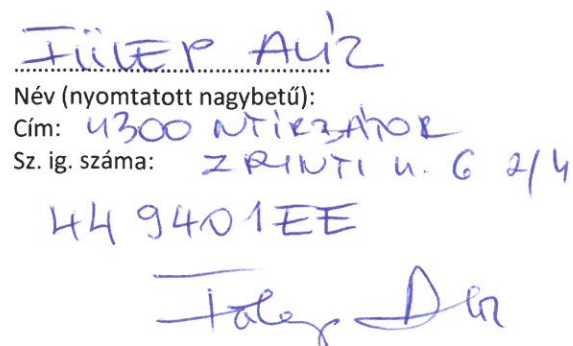 FÜLEP ALÍZ
Név (nyomtatott nagybetű):
Cím: 4300 NYÍRBÁTOR
Sz. ig. száma: ZRINYI u. 6 2/4
449401EE
Fülep Alíz